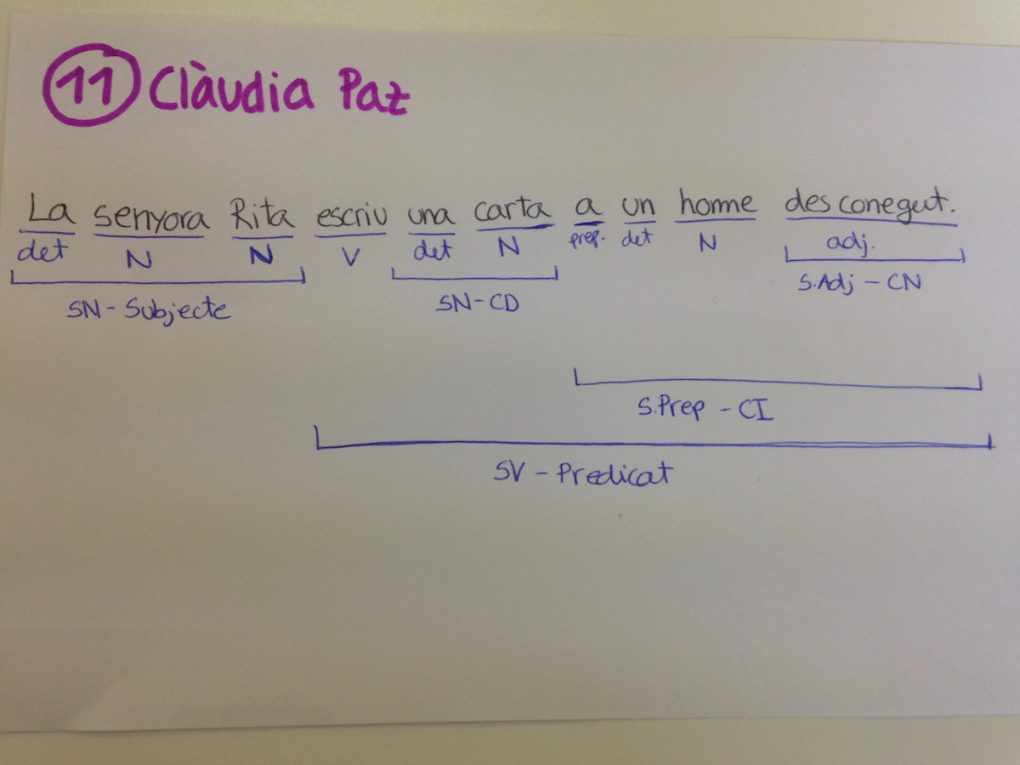 11 Clàudia Paz
La senyora Rita escriu una carta a un home desconegut.
det N N V det N prep. det N adj.
SN - Subjecte SN - CD S.Adj - CN
S.Prep - CI
SV - Predicat